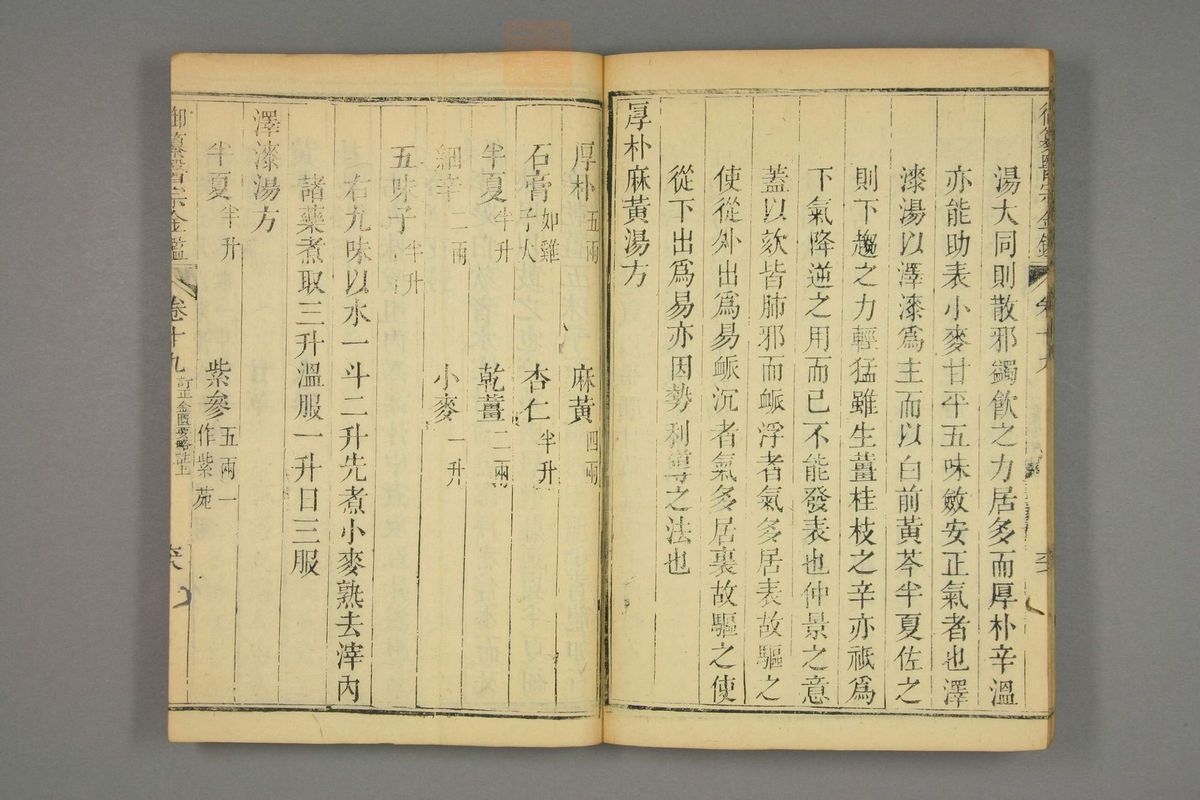 湯大同則散邪蠲飮之力居多而厚朴辛溫
亦能助表小麥甘平五味斂安正氣者也澤
漆湯以澤漆爲主而以白前黃芩半夏佐之
則下趨之力輕猛雖生薑桂枝之辛亦祗爲
下氣降逆之用而已不能發表也仲景之意
蓋以欬皆肺邪而脈浮者氣多居表故驅之
使從外出爲易脈沉者氣多居裏故驅之使
從下出爲易亦因勢利導之法也
厚朴麻黃湯方
厚朴五兩 麻黃四兩
石膏如雞子大 杏仁半升
半夏半升 乾薑二兩
細辛二兩 小麥一升
五味子半升
右九味以水一斗二升先煮小麥熟去滓內
諸藥煮取三升溫服一升日三服
澤漆湯方
半夏半升 紫參五兩一作紫苑
御纂醫宗金鑑 卷十九 訂正金匱要略註